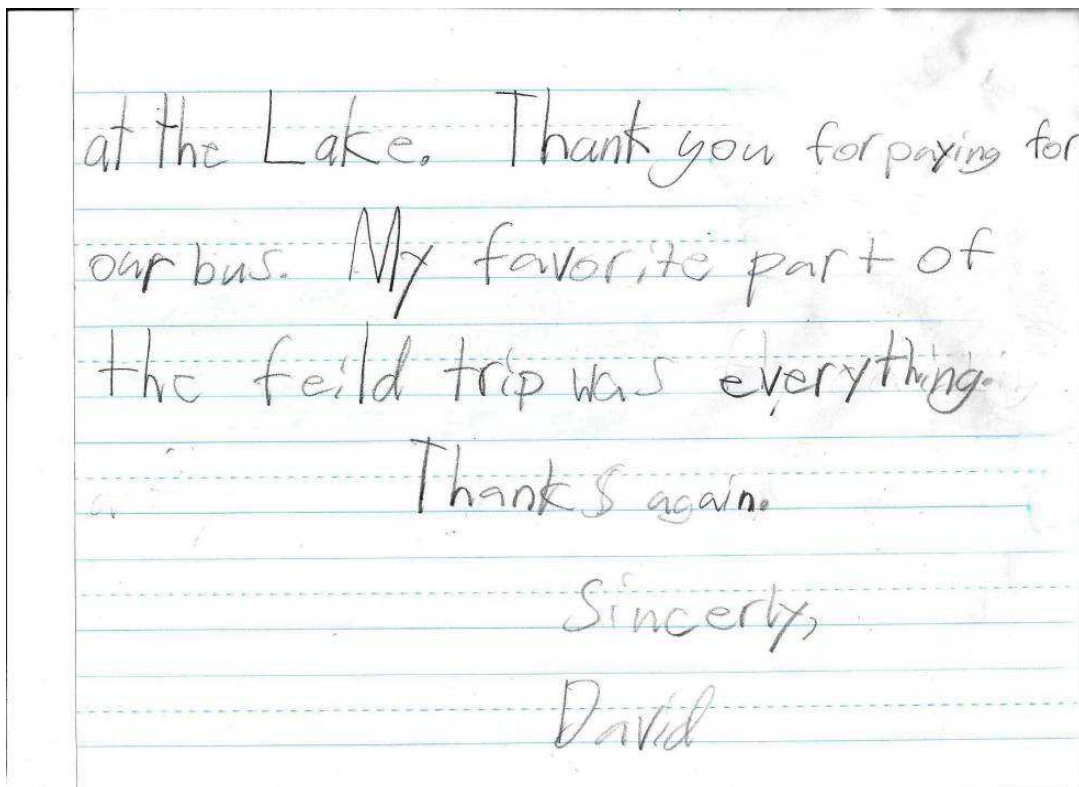 at the Lake. Thank you for paying for
our bus. My favorite part of
the feild trip was everything.
Thanks again.
Sincerly,
David